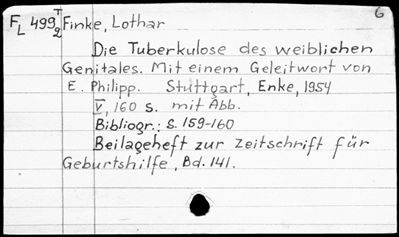 6
F L 499 T 2 Finke, Lothar
Die Tuberkulose des weiblichen
Genitales. Mit einem Geleitwort von
E. Philipp. Stuttgart, Enke, 1954
V, 160 S. mit Abb.
Bibliogr.: S. 159-160
Beilageheft zur Zeitschrift für
Geburtshilfe, Bd. 141.